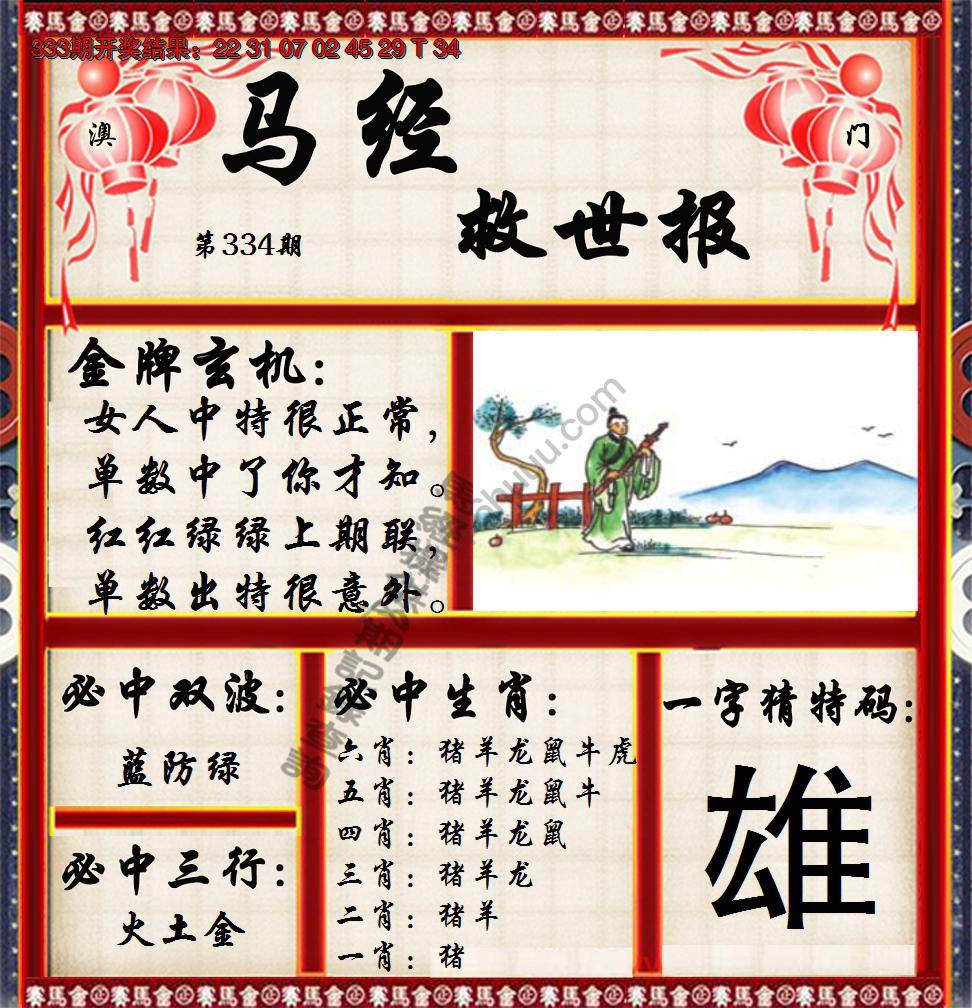 赛馬會
333期开奖结果：22 31 07 02 45 29 T 34
澳 门
马经
救世报
第334期
金牌玄机：
女人中特很正常，
单数中了你才知。
红红绿绿上期联，
单数出特很意外。
必中双波：
蓝防绿
必中三行：
火土金
必中生肖：
六肖：猪羊龙鼠牛虎
五肖：猪羊龙鼠牛
四肖：猪羊龙鼠
三肖：猪羊龙
二肖：猪羊
一肖：猪
一字猜特码：
雄